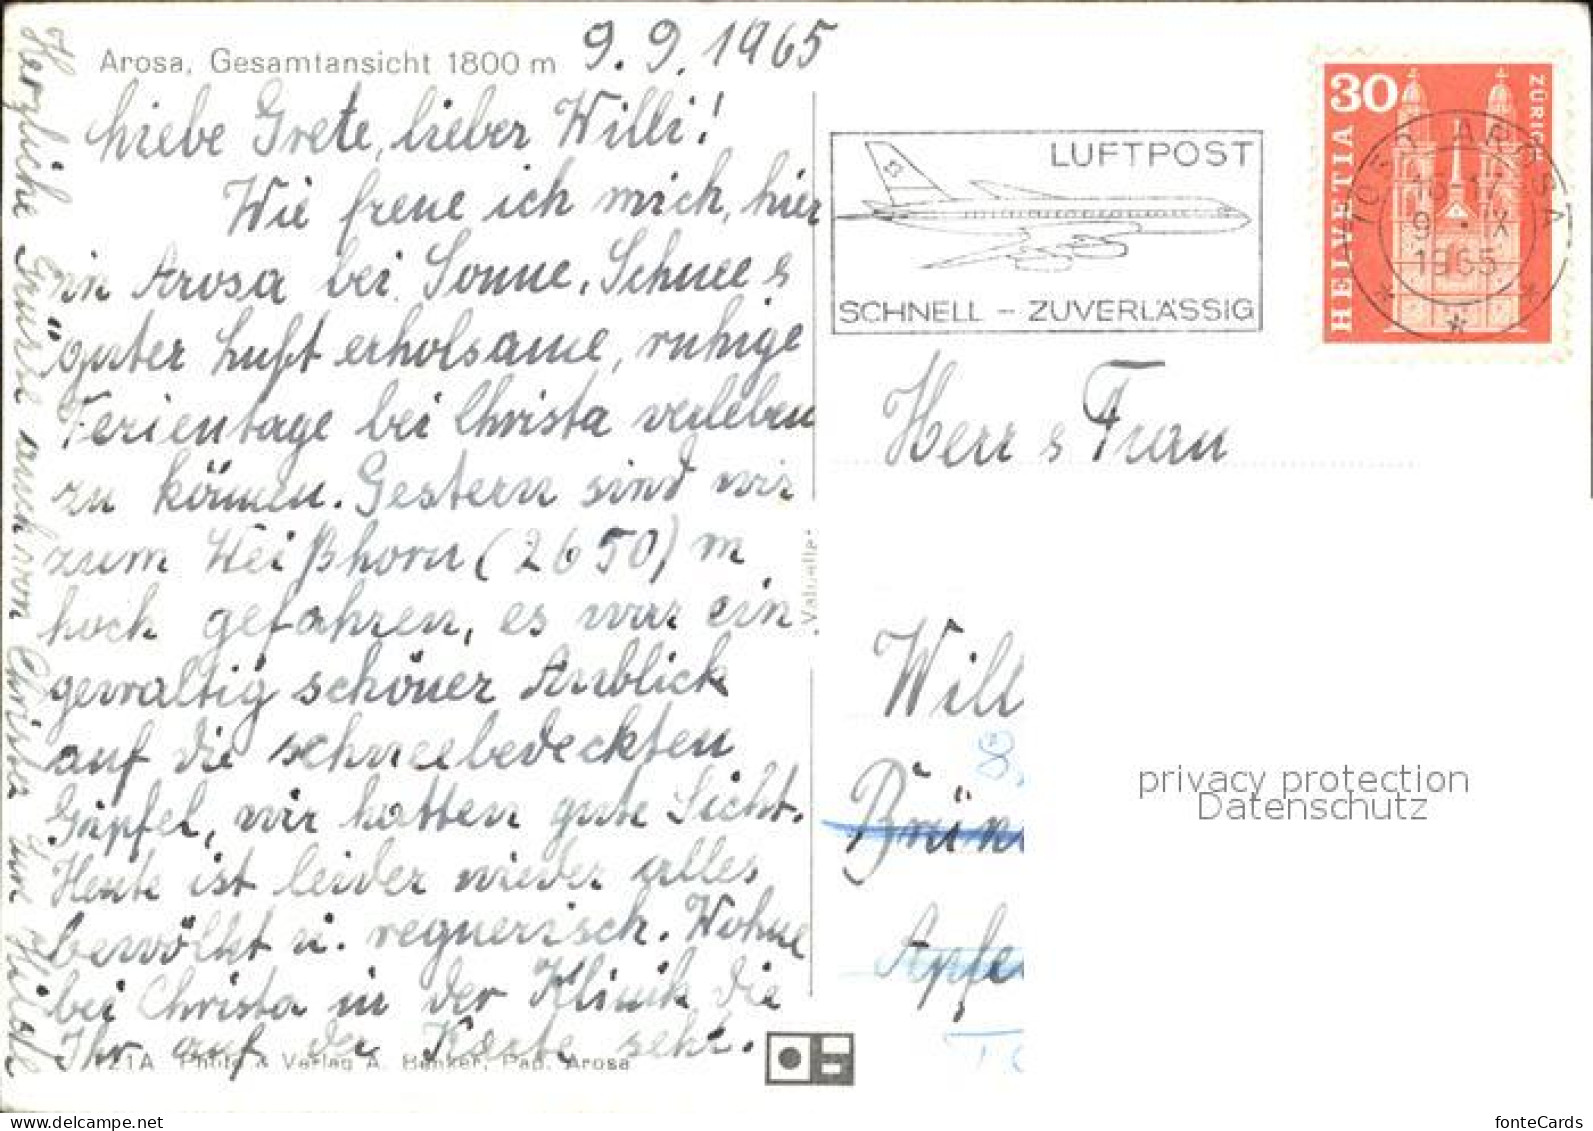 Arosa, Gesamtansicht 1800 m
9.9.1965
Liebe Grete, lieber Willi!
Wie freue ich mich, hier
in Arosa bei Sonne, Schnee &
guter Luft erholsame, ruhige
Ferientage bei Christa verleben
zu können. Gestern sind wir
zum Weißhorn (2650) m
hoch gefahren, es war ein
gewaltig schöner Anblick
auf die schneebedeckten
Gipfel, wir hatten gute Sicht.
Heute ist leider wieder alles
bewölkt u. regnerisch. Wohne
bei Christa in der Klinik die
Ihr auf der Karte seht.
Herzliche Grüsse auch von Christa Eure Hilde
121A Photo & Verlag A. Benker, Pap. Arosa
LUFTPOST
SCHNELL - ZUVERLÄSSIG
30
HELVETIA
ZÜRICH
AROSA
16-17
9. IX
1965
Herr & Frau
Will
Brün
Apfe
privacy protection
Datenschutz
fonteCards